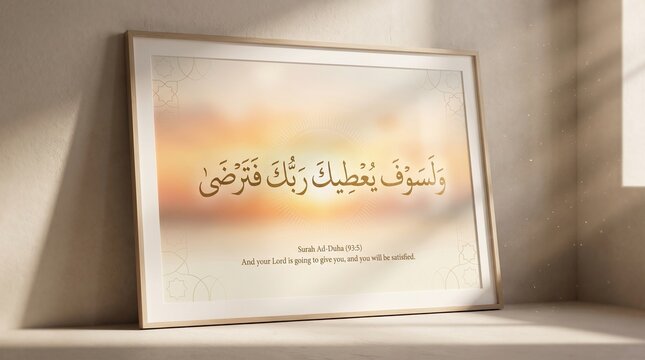 وَلَسَوْفَ يُعْطِيكَ رَبُّكَ فَتَرْضَىٰ
Surah Ad-Duha (93:5)
And your Lord is going to give you, and you will be satisfied.